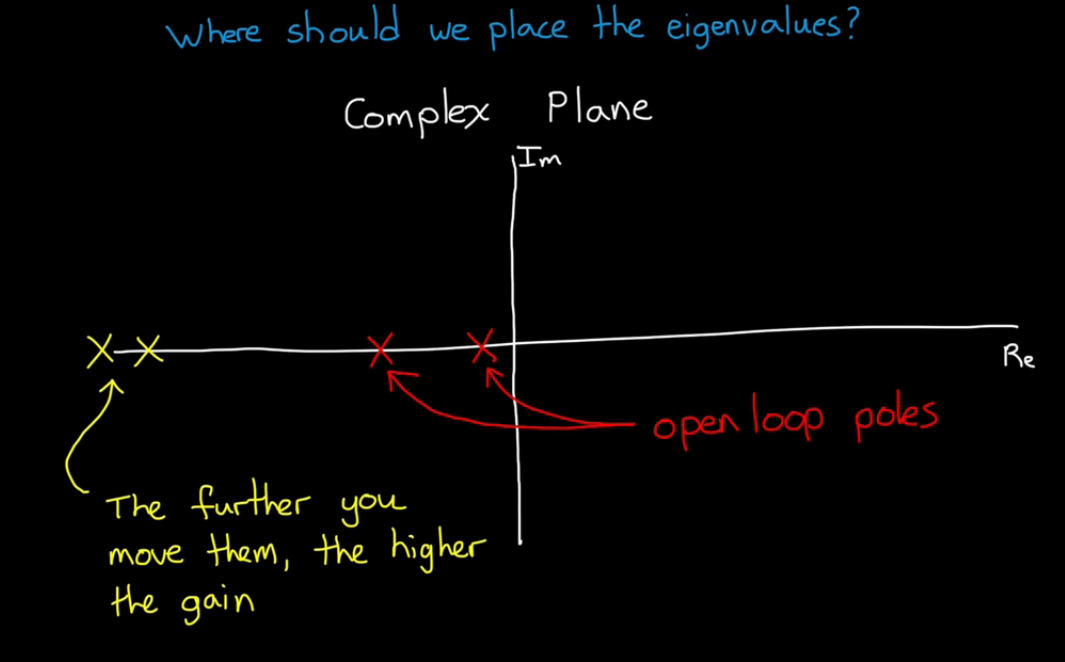 Where should we place the eigenvalues?
Complex Plane
Im
Re
open loop poles
The further you
move them, the higher
the gain